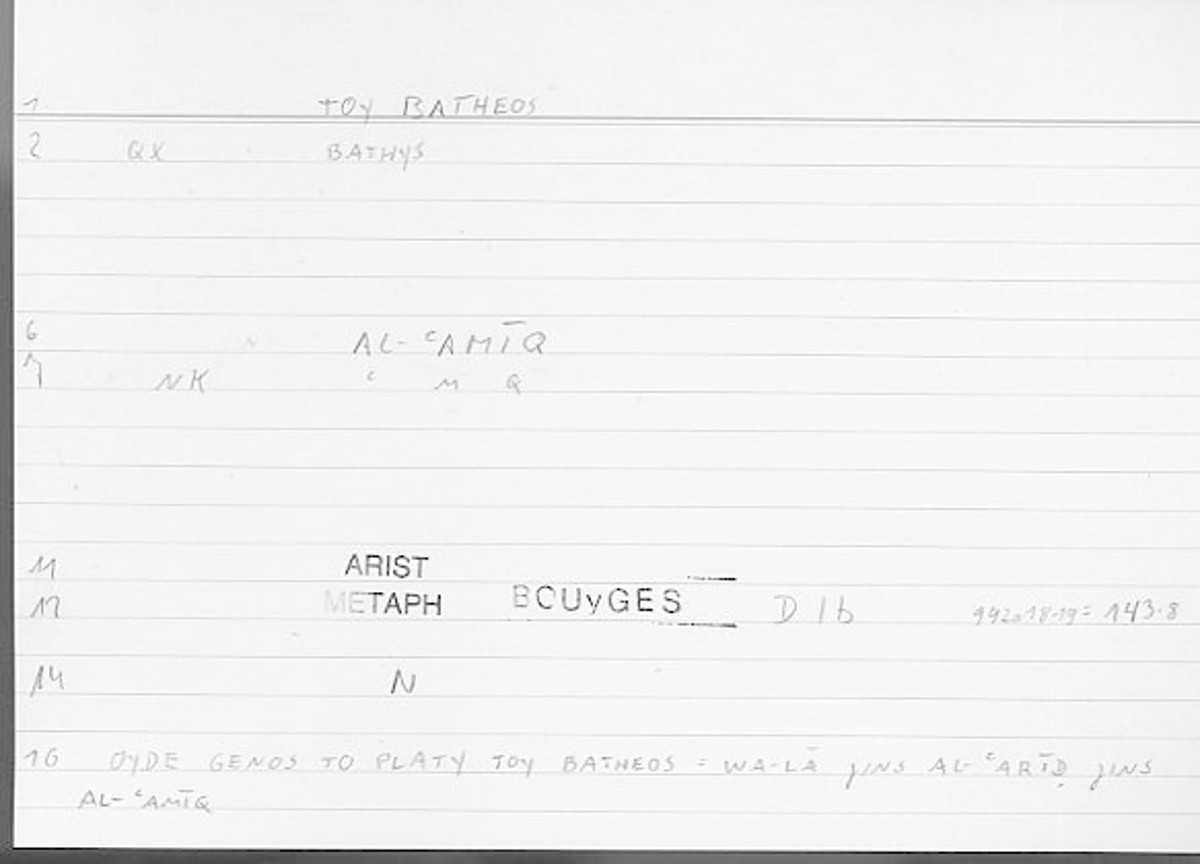 1 TOY BATHEOS
2 QX BATHYS
6 AL-ʿAMĪQ
7 NK ʿ M Q
11 ARIST
12 METAPH BOUyGES D 1b 992a18-19 = 143.8
14 N
16 OYDE GENOS TO PLATY TOY BATHEOS = WA-LĀ JINS AL-ʿARĪḌ JINS
AL-ʿAMĪQ